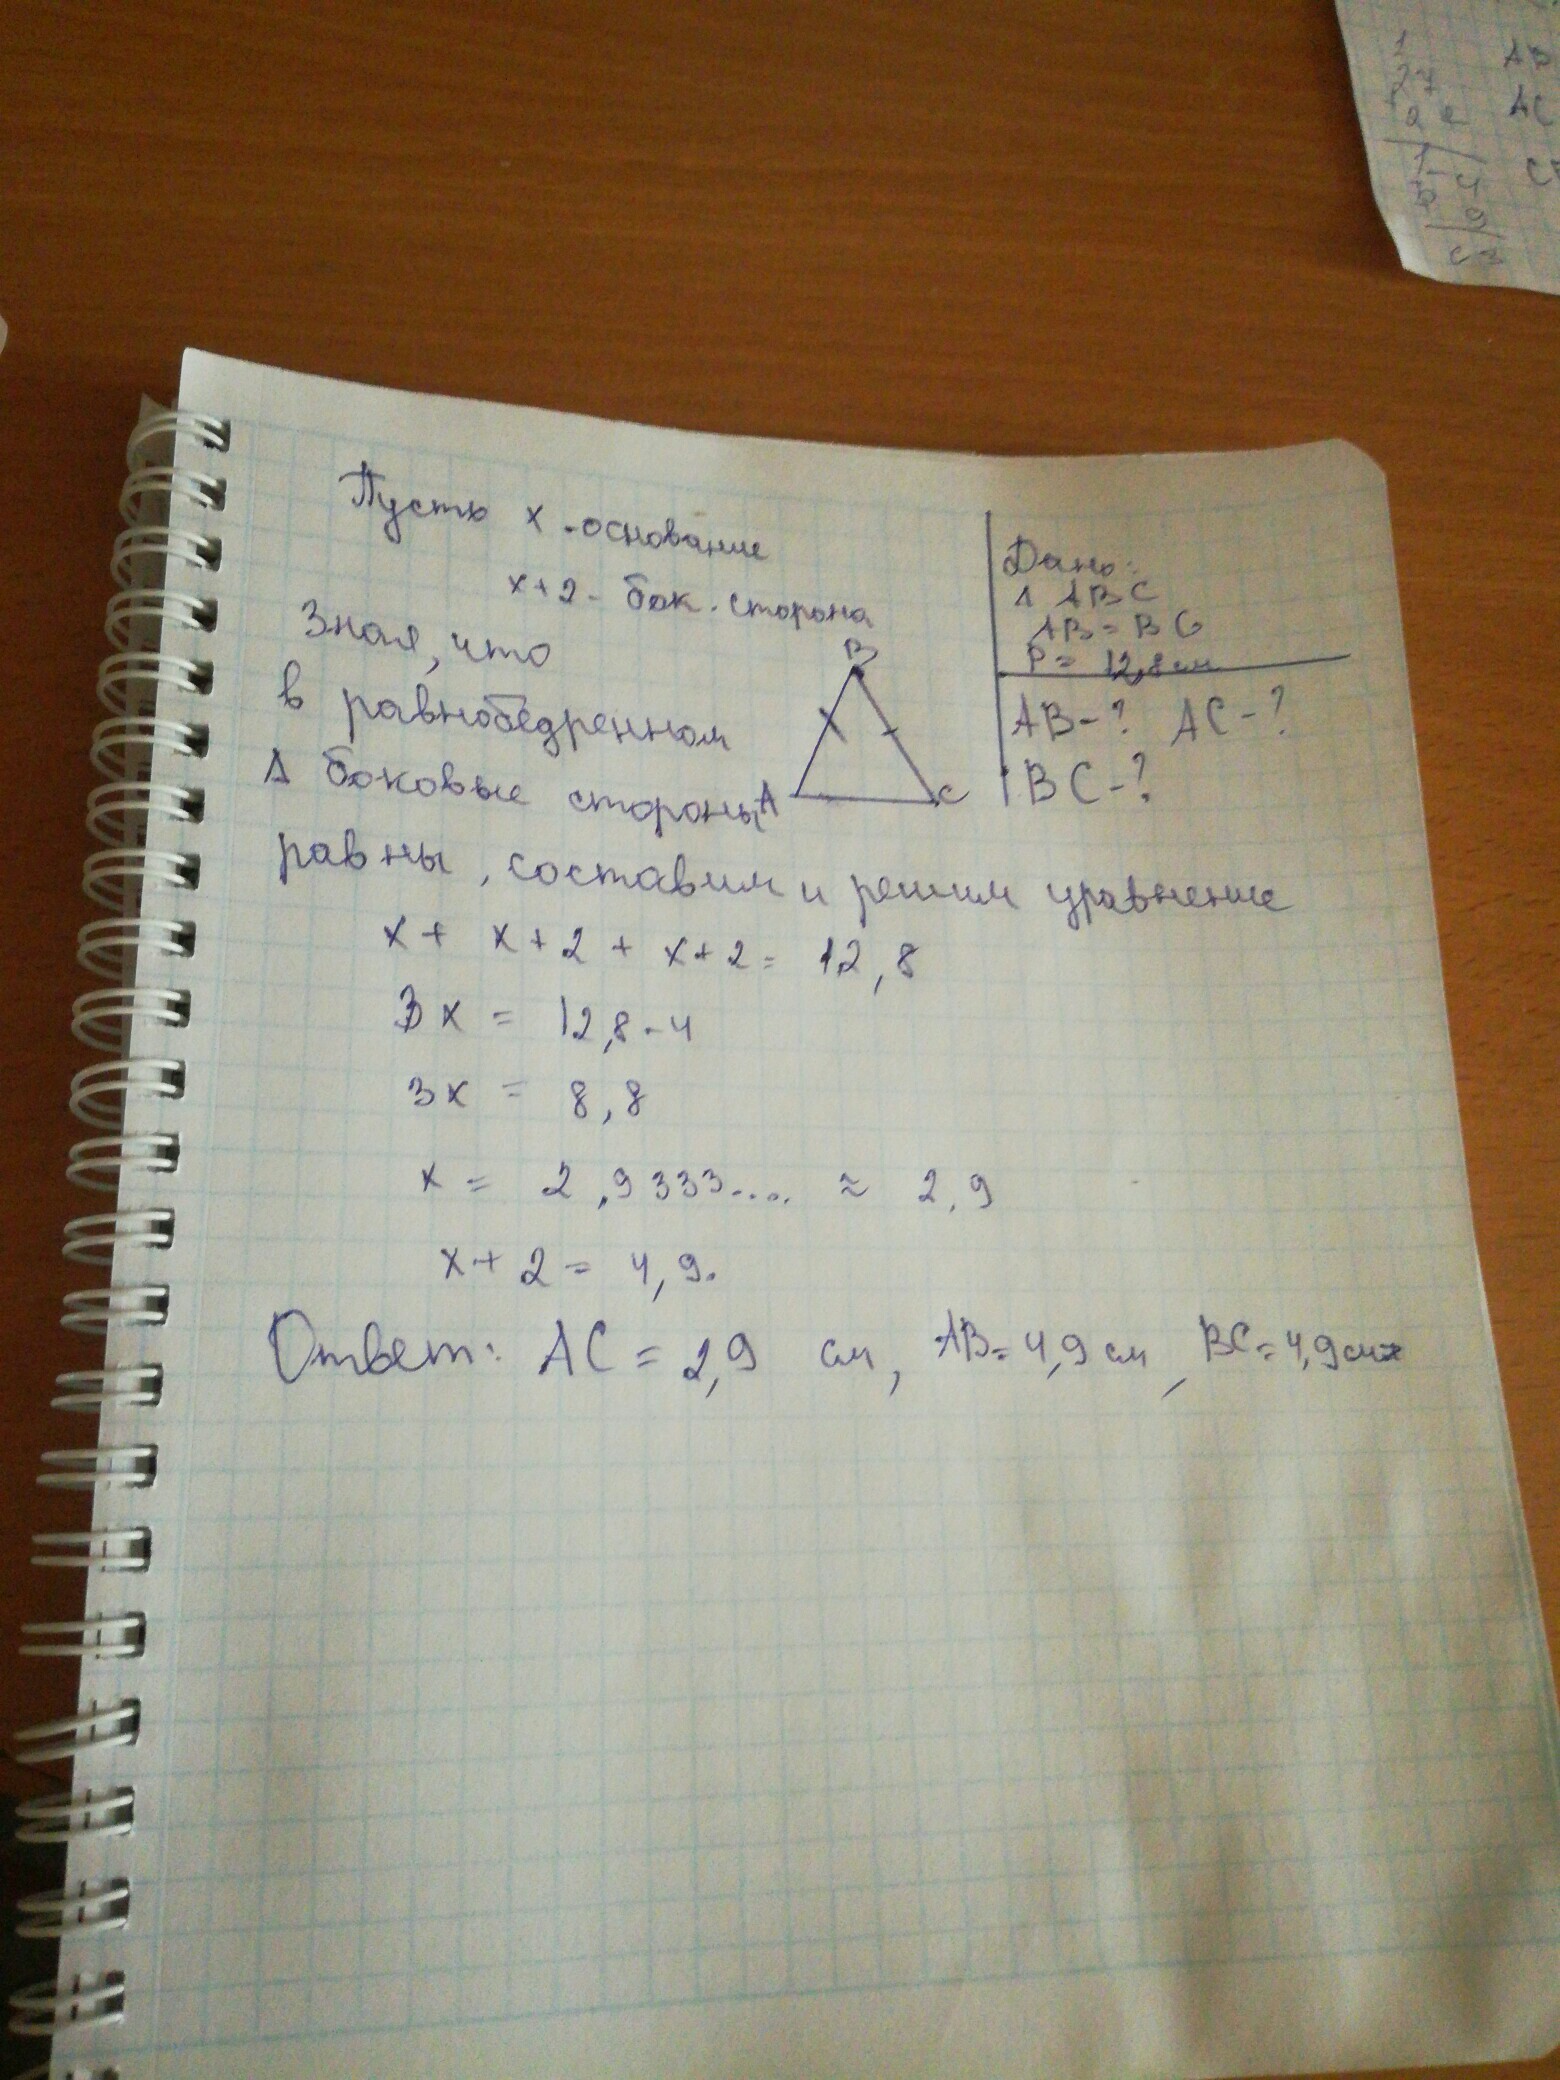 Пусть x - основание
x+2 - бок. сторона
Зная, что
в равнобедренном
Δ боковые стороны
равны, составим и решим уравнение
Дано:
Δ ABC
AB = BC
P = 12,8 см
AB - ? AC - ?
BC - ?
B
A
C
x + x + 2 + x + 2 = 12,8
3x = 12,8 - 4
3x = 8,8
x = 2,9333.... ≈ 2,9
x + 2 = 4,9.
Ответ: AC = 2,9 см, AB = 4,9 см, BC = 4,9 см
AC